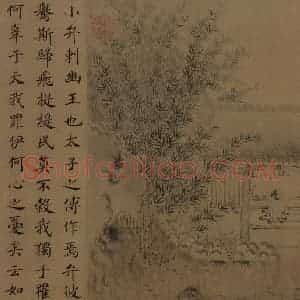 小弁刺幽王也太子之傅作焉弁彼
鸒斯歸飛提提民莫不穀我獨于罹
何辜于天我罪伊何心之憂矣云如
Shufaziliao.com